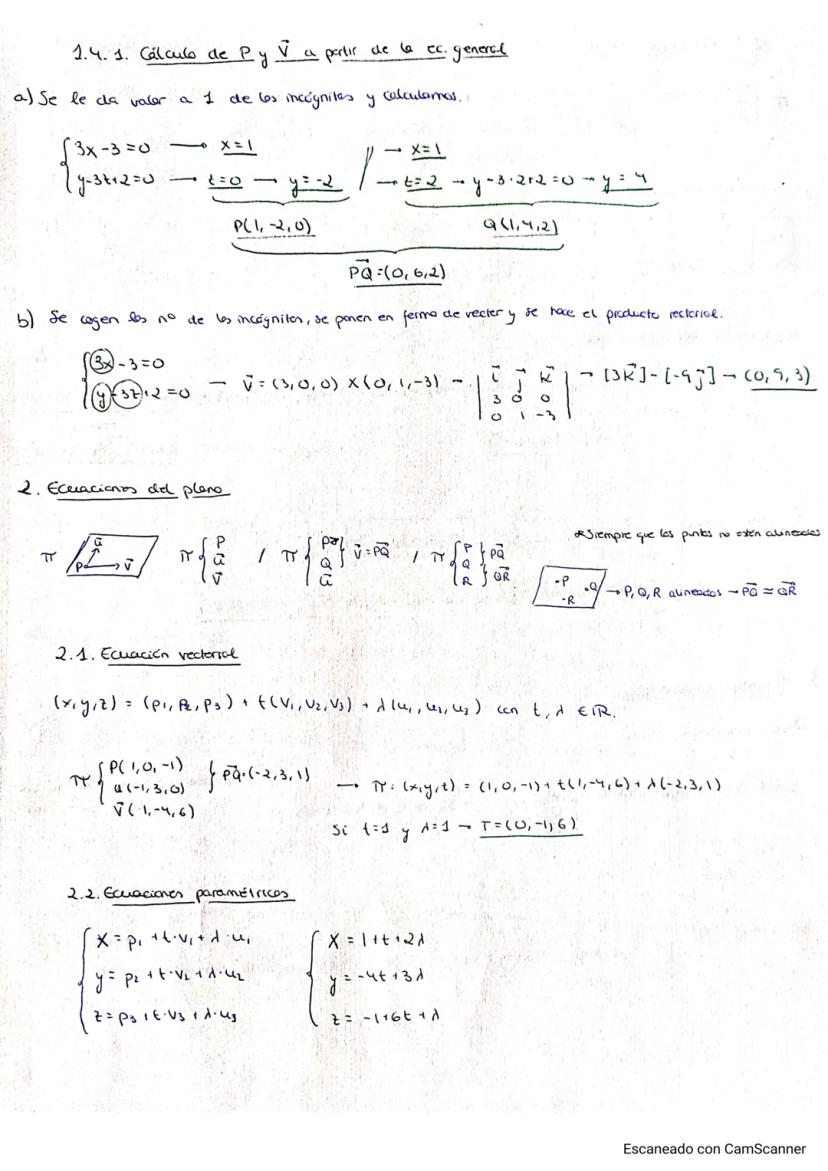 1.4.1. Cálculo de P y V⃗ a partir de la ec. general
a) Se le da valor a 1 de las incógnitas y calculamos.
{ 3x-3=0 → x=1 / → x=1
{ y-3t+2=0 → t=0 → y=-2 / → t=2 → y-3·2+2=0 → y=4
P(1,-2,0) Q(1,4,2)
PQ⃗=(0,6,2)
b) Se cogen los nº de las incógnitas, se ponen en forma de vector y se hace el producto vectorial.
{ 3x-3=0
{ y-3z+2=0 → V⃗=(3,0,0)×(0,1,-3) → | i⃗ j⃗ k⃗ | → [3k⃗]-[-9j⃗] → (0,9,3)
3 0 0
0 1 -3
2. Ecuaciones del plano
*Siempre que los puntos no estén alineados
π P u⃗ v⃗ π { P u⃗ v⃗ / π { P Q u⃗ } v⃗=PQ⃗ / π { P Q R } PQ⃗ QR⃗
·P ·Q ·R → P, Q, R alineados → PQ⃗ = QR⃗
2.1. Ecuación vectorial
(x,y,z) = (p1, p2, p3) + t(v1, v2, v3) + λ(u1, u2, u3) con t, λ ∈ ℝ.
π { P(1,0,-1)
Q(-1,3,0) } PQ⃗=(-2,3,1) → π: (x,y,t) = (1,0,-1)+t(1,-4,6)+λ(-2,3,1)
V⃗(1,-4,6)
Si t=1 y λ=1 → T=(0,-1,6)
2.2. Ecuaciones paramétricas
{ x = p1 + t·v1 + λ·u1 { x = 1+t+2λ
{ y = p2 + t·v2 + λ·u2 { y = -4t+3λ
{ z = p3 + t·v3 + λ·u3 { z = -1+6t+λ
Escaneado con CamScanner